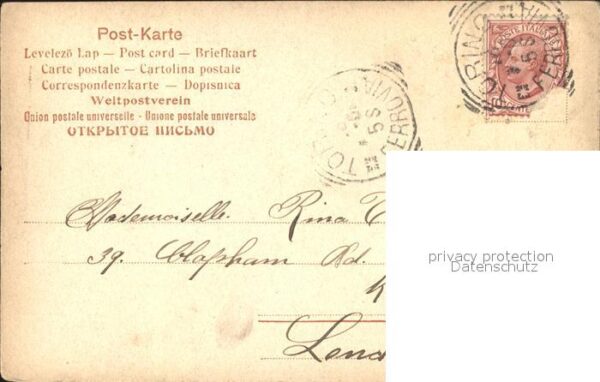 Post-Karte
Levelező Lap — Post card — Briefkaart
Carte postale — Cartolina postale
Correspondenzkarte — Dopisnica
Weltpostverein
Union postale universelle - Unione postale universale
ОТКРЫТОЕ ПИСЬМО
TORINO
FERROVIA
TORINO
FERROVIA
Mademoiselle. Rina
39. Clapham Rd.
Lond
privacy protection
Datenschutz